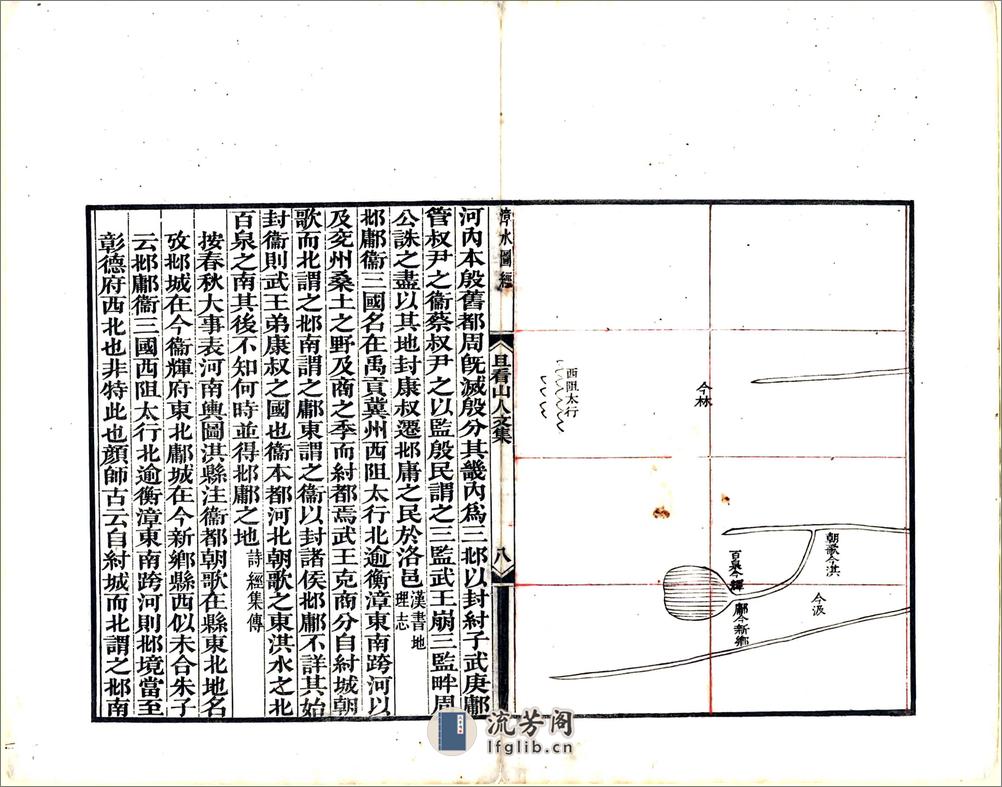 今林
西阻太行
朝歌今淇
今汲
百泉今輝
鄘今新鄉
水圖經
且看山人文集
八
河內本殷舊都周旣滅殷分其畿內爲三邶以封紂子武庚鄘
管叔尹之衞蔡叔尹之以監殷民謂之三監武王崩三監畔周
公誅之盡以其地封康叔遷邶庸之民於洛邑漢書地理志
邶鄘衞三國名在禹貢冀州西阻太行北逾衡漳東南跨河以
及兖州桑土之野及商之季而紂都焉武王克商分自紂城朝
歌而北謂之邶南謂之鄘東謂之衞以封諸侯邶鄘不詳其始
封衞則武王弟康叔之國也衞本都河北朝歌之東淇水之北
百泉之南其後不知何時並得邶鄘之地詩經集傳
按春秋大事表河南輿圖淇縣注衞都朝歌在縣東北地名
攷邶城在今衞輝府東北鄘城在今新鄉縣西似未合朱子
云邶鄘衞三國西阻太行北逾衡漳東南跨河則邶境當至
彰德府西北也非特此也顏師古云自紂城而北謂之邶南
流芳阁
lfglib.cn